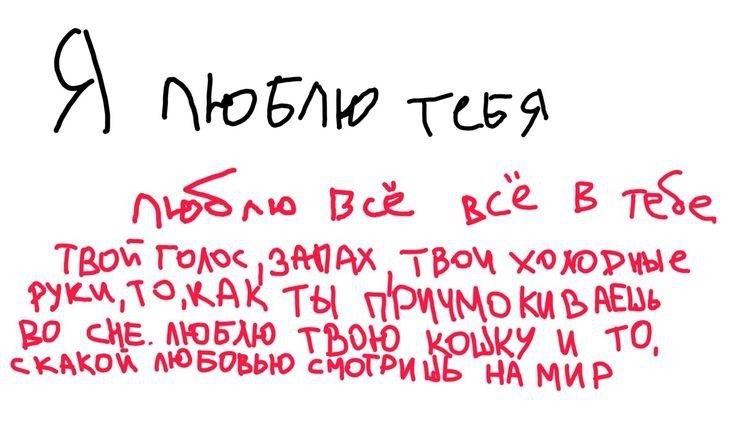 Я ЛЮБЛЮ ТЕБЯ
люблю всё всё в тебе
ТВОЙ ГОЛОС, ЗАПАХ, ТВОИ ХОЛОДНЫЕ
РУКИ, ТО, КАК ТЫ ПРИЧМОКИВАЕШЬ
ВО СНЕ. ЛЮБЛЮ ТВОЮ КОШКУ И ТО,
С КАКОЙ ЛЮБОВЬЮ СМОТРИШЬ НА МИР